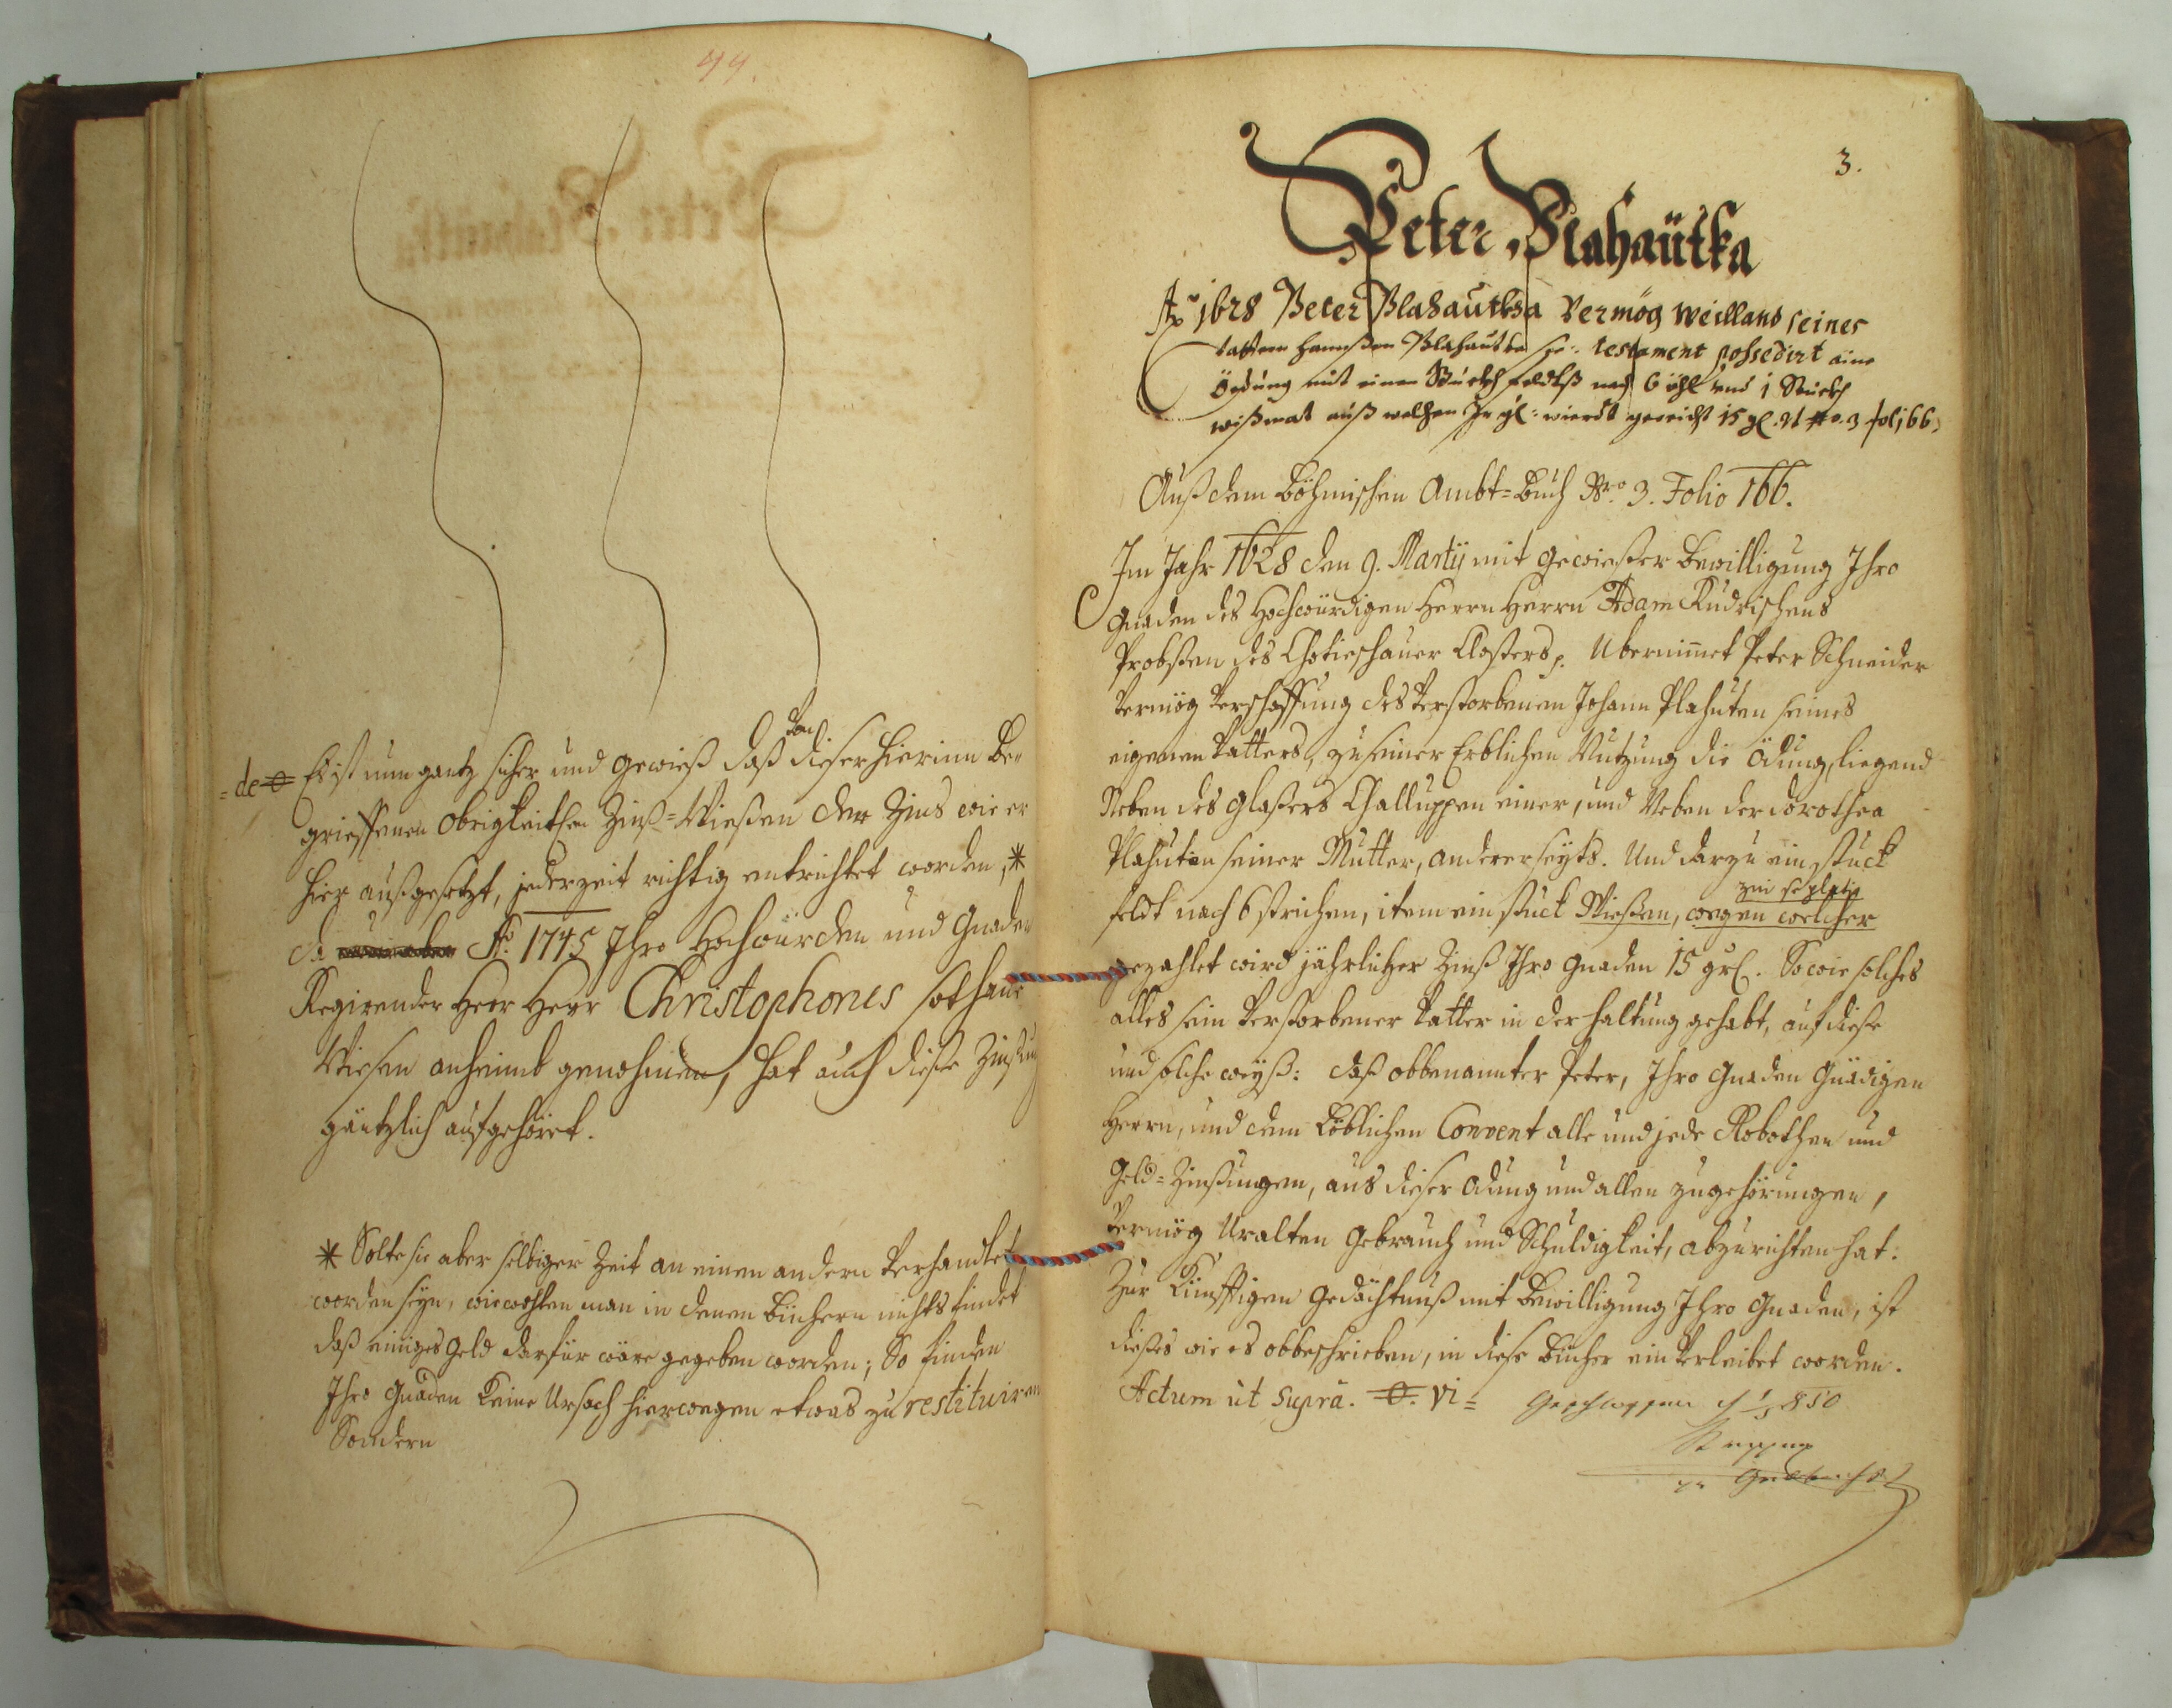 99.
Es ist nun gantz sicher und gewieß daß von dieser hierinn be-
= de
griffenen Obrigkeithen Zinß=Wießen der Zins wie er
hier außgesetzt, jederzeit richtig entrichtet worden, *
da Ao. 1745 Ihro Hochwürden und Gnaden
Regirender Herr Herr Christophorus sothane
Wiesen anheimb genohmen, hat auch diese Zinßung
gäntzlich aufgehöret.
* Solte sie aber selbiger Zeit an einen andern verhandlet
worden seyn, wiewohlen man in denen Büchern nichts findet
daß einiges Geld darfür wäre gegeben worden; So finden
Ihro Gnaden keine Ursach hierwegen etwas zu restituiren
Sondern
3.
Peter Blahautka
Ao 1628 Peter Blahautka Vermög Weilland seines
Vattern Hannßen Blahautka testament possedirt eine
Ödung mit einem Stuckh feldtß nach 6 und 1 Stuckh
wißmat auß welchen Ihr gl: wierdt gereicht 15 gl. No. 3 foli 66
Auß dem Böhmischen Ambt=Buch Nro. 3. Folio 166.
Im Jahr 1628 den 9. Martij mit gewießer Bewilligung Ihro
Gnaden des Hochwürdigen Herrn Herrn Adam Kudrischens
Probsten des Chotieschauer Closters p. Übernimmet Peter Schneider
Vermög Verschaffung des Verstorbenen Johann Plahuten seines
eigenen Vatters, zu seiner Erblichen Nutzung die Ödung, liegend
Neben des Glaßers Challuppen einer, und Neben der Dorothea
Plahutin seiner Mutter, anderer seyts. Und darzu ein stuck
feldt nach 6 strichen, item ein stuck Wießen, wegen welcher
gezahlet wird jährlicher Zinß Ihro Gnaden 15 grl. So wie solches
alles sein Verstorbener Vatter in der haltung gehabt, auf diese
und solche weyß: daß obbenannter Peter, Ihro Gnaden Gnädigen
Herrn, und dem Löblichen Convent alle und jede Robothen und
Geld=Zinßungen, aus dieser Ödung und allen zugehörungen,
Vermög Uralten Gebrauch und Schuldigkeit, abzurichten hat.
Zur Künfftigen Gedächtnuß mit Bewilligung Ihro Gnaden, ist
dießes wie es obbeschrieben, in diese Bücher ein Verleibet worden.
Actum ut supra. vi= 850